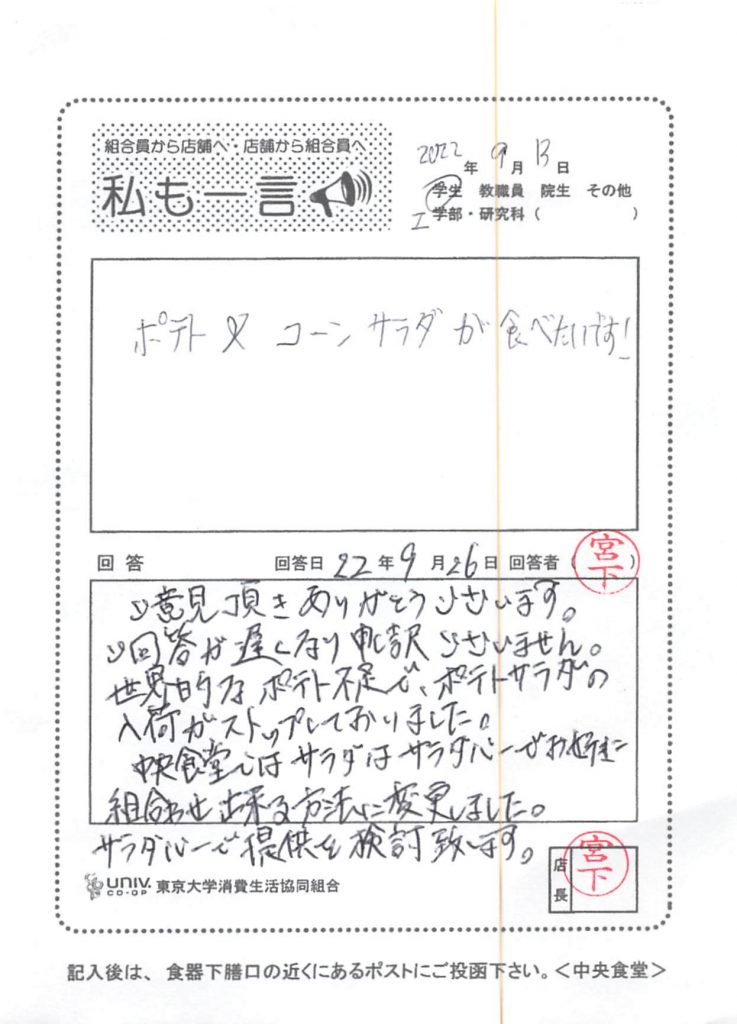 組合員から店舗へ・店舗から組合員へ
私も一言
2022年 9月 13日
学生 教職員 院生 その他
工学部・研究科( )
ポテト&コーンサラダが食べたいです!
回答 回答日 22年9月26日 回答者(宮下)
ご意見頂きありがとうございます。
ご回答が遅くなり申訳ございません。
世界的なポテト不足で、ポテトサラダの
入荷がストップしておりました。
中央食堂ではサラダはサラダバーでお好きに
組合わせ出来る方法に変更しました。
サラダバーで提供を検討致します。
店長 宮下
UNIV. CO-OP 東京大学消費生活協同組合
記入後は、食器下膳口の近くにあるポストにご投函下さい。<中央食堂>